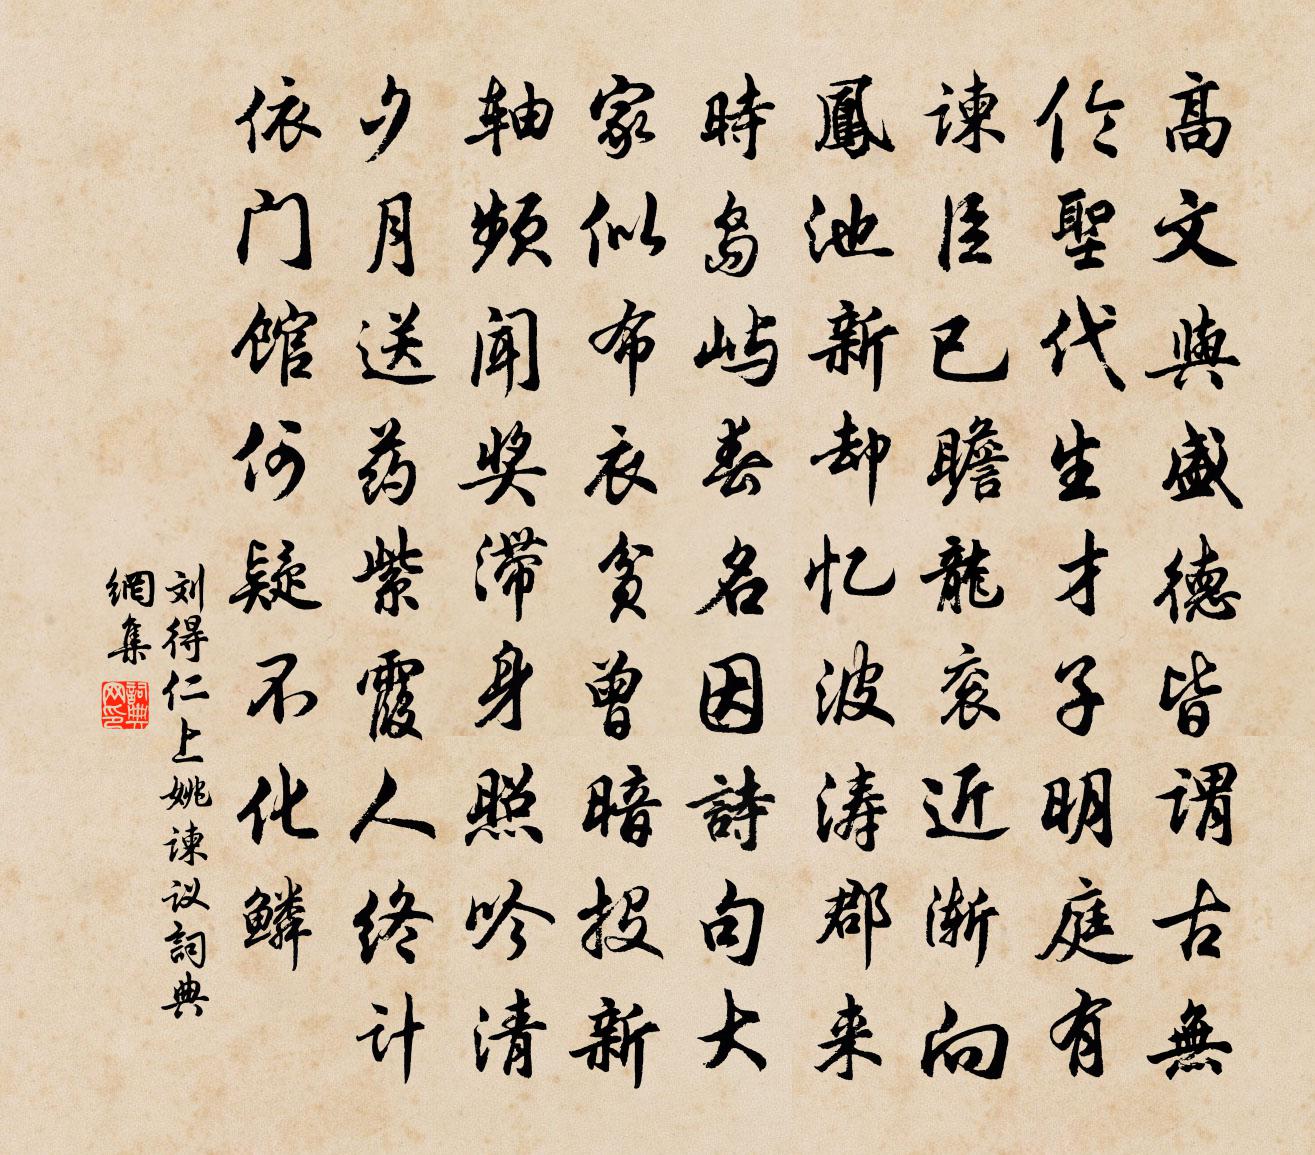 高文與盛德皆谓古無
伦聖代生才子明庭有
谏臣已瞻龍衮近渐向
鳳池新却忆波涛郡来
時岛屿春名因詩句大
家似布衣贫曾暗投新
轴频闻奖滞身照吟清
夕月送药紫霞人终计
依门馆何疑不化鳞
刘得仁上姚谏议詞典
網集
詞典网印